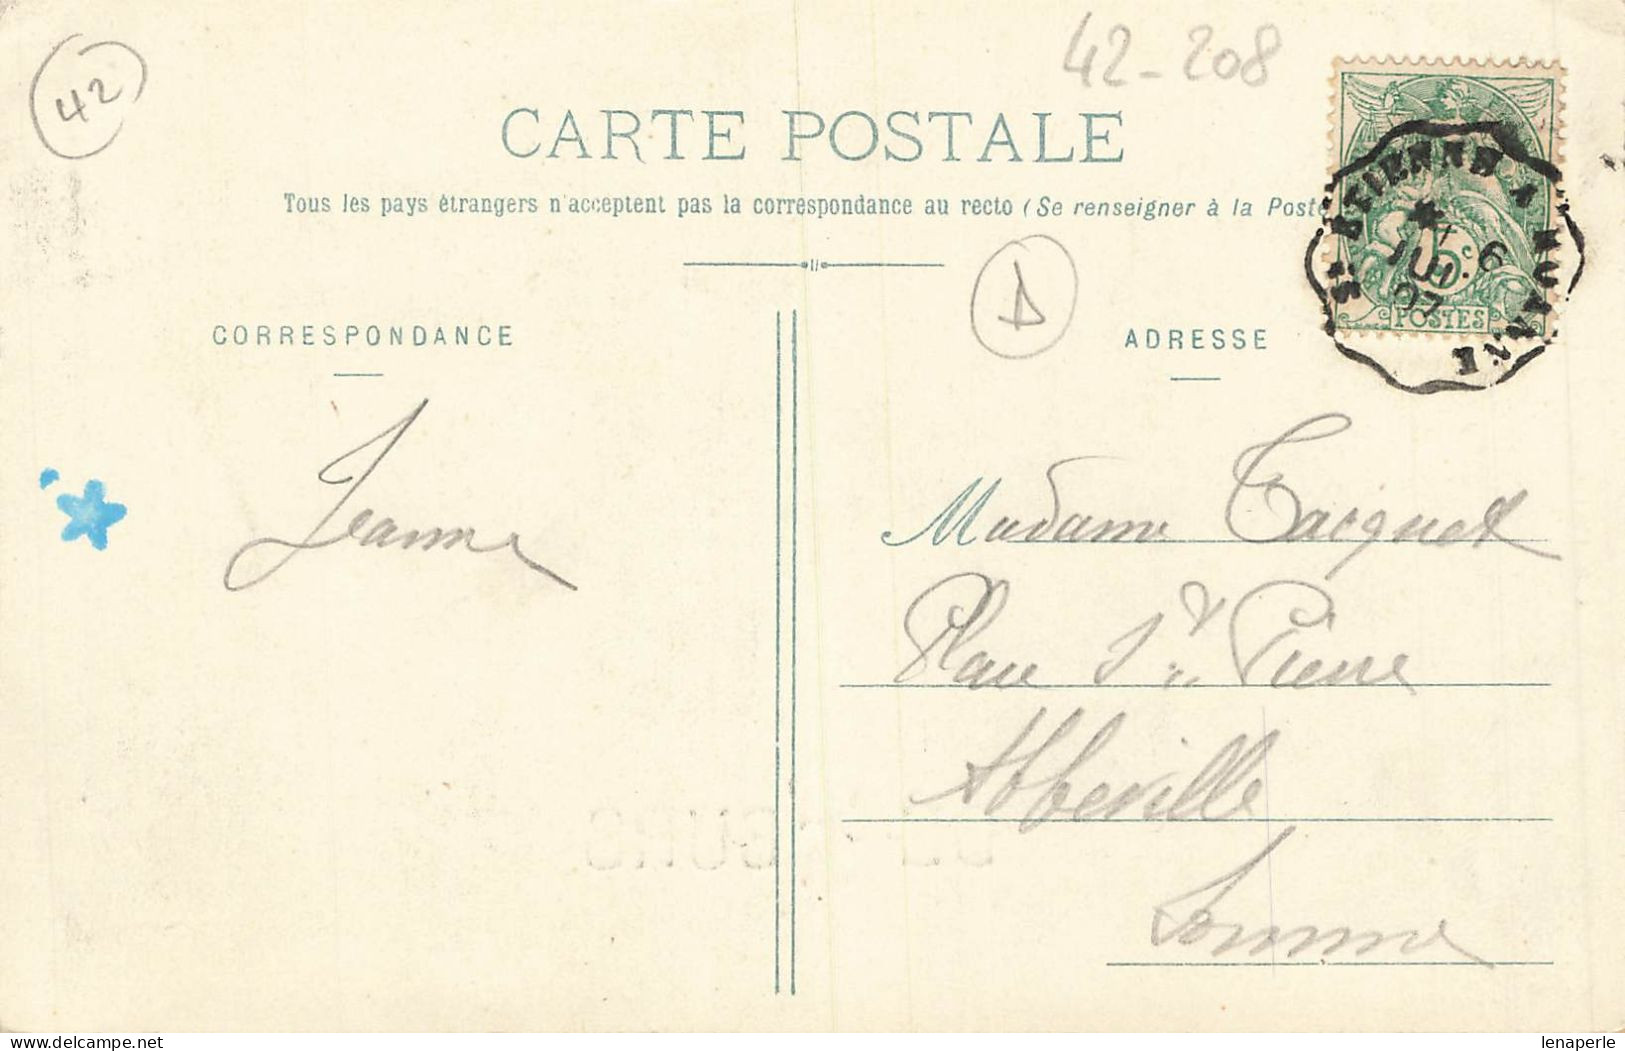 42
42-208
CARTE POSTALE
Tous les pays étrangers n'acceptent pas la correspondance au recto (Se renseigner à la Poste
ST ETIENNE A ROANNE
6
JUIL
07
5c
POSTES
D
CORRESPONDANCE
ADRESSE
Jeanne
Madame Tacquet
Place St Pierre
Abbeville
Somme
delcampe.net
lenaperle